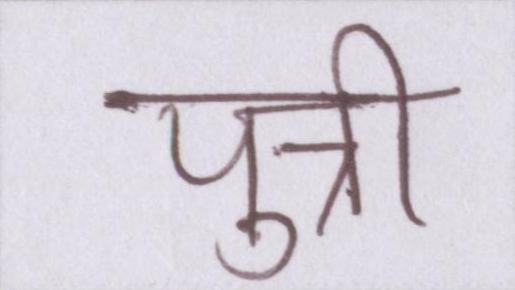 पुत्री